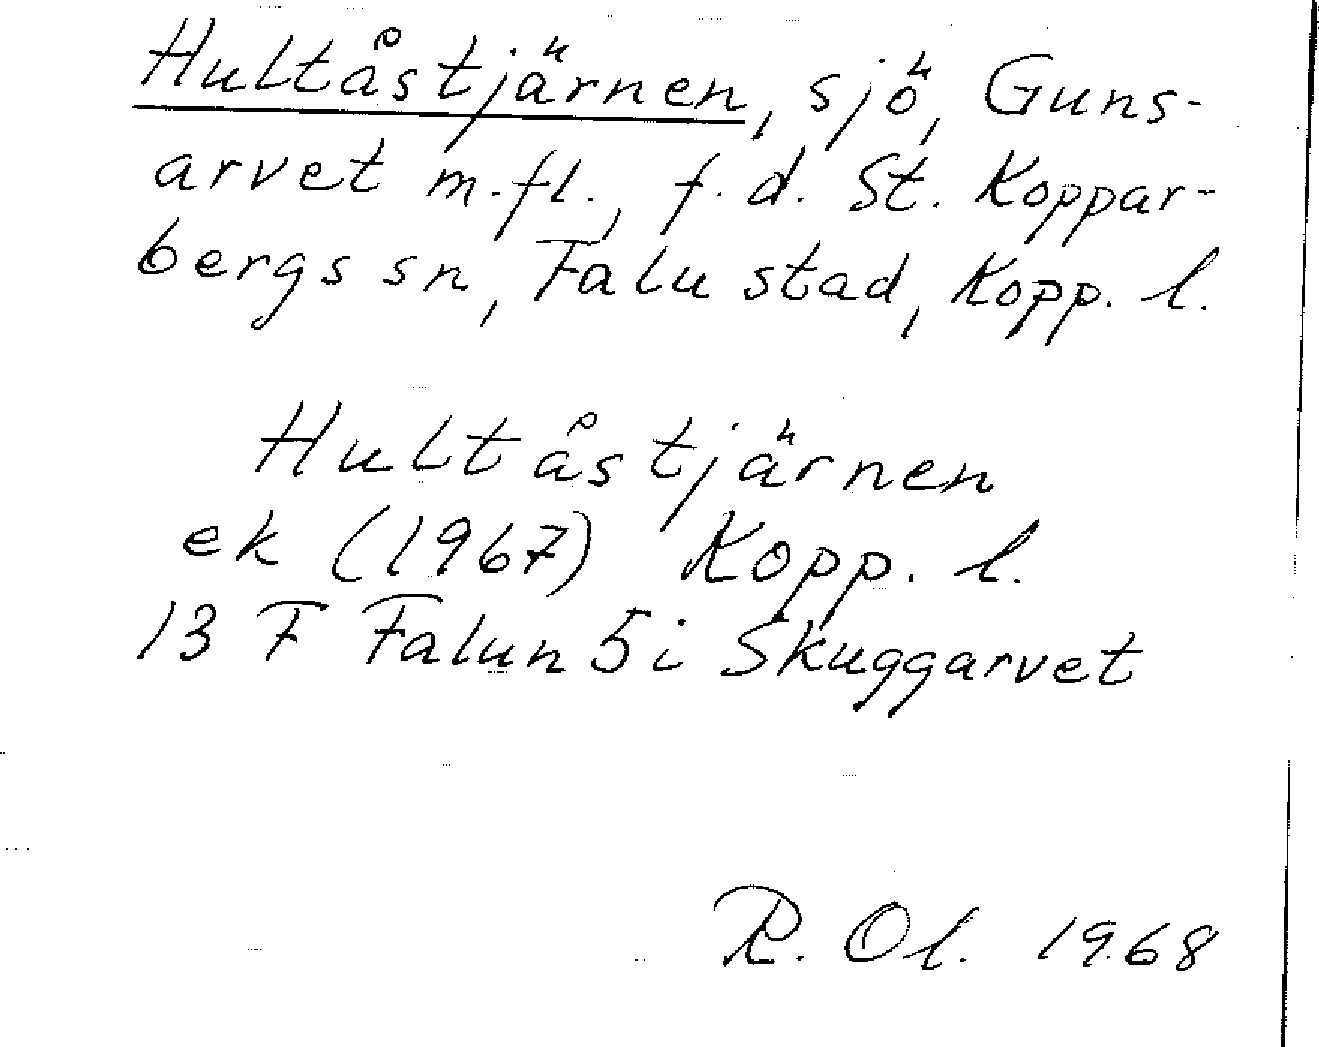 Hultåstjärnen, sjö, Guns-
arvet m.fl., f.d. St. Koppar-
bergs sn, Falu stad, Kopp. l.
Hultåstjärnen
ek (1967) Kopp. l.
13 F Falun 5 i Skuggarvet
R. Ol. 1968